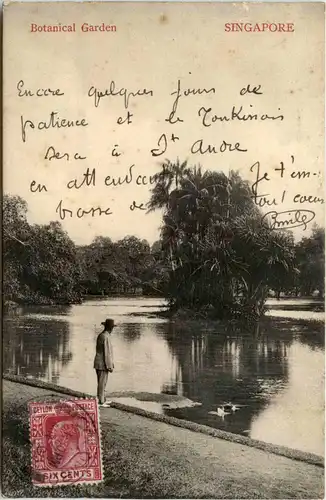 Botanical Garden
SINGAPORE
Encore quelques jours de
patience et le Tonkinois
sera à St André
en attendant Je t'em-
brasse de tout coeur
Emile
CEYLON POSTAGE
SIX CENTS